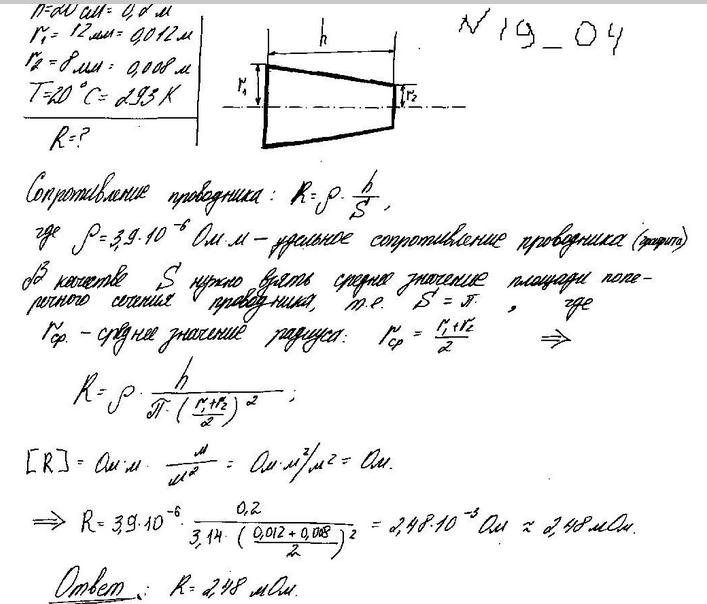 h=20 см = 0,2 м
r₁ = 12 мм = 0,012 м
r₂ = 8 мм = 0,008 м
T=20°C = 293 K
R=?
h
r₁
r₂
N 19_04
Сопротивление проводника: R = ρ · h/S ,
где ρ = 3,9·10⁻⁶ Ом·м – удельное сопротивление проводника (графита)
В качестве S нужно взять среднее значение площади попе-
речного сечения проводника, т.е. S = π , где
rср. – среднее значение радиуса: rср = (r₁+r₂)/2 ⇒
R = ρ · h/(π·((r₁+r₂)/2)²) ;
[R] = Ом·м · м/м² = Ом·м²/м² = Ом.
⇒ R = 3,9·10⁻⁶ · 0,2/(3,14·((0,012+0,008)/2)²) = 2,48·10⁻³ Ом ≈ 2,48 мОм.
Ответ: R = 2,48 мОм.